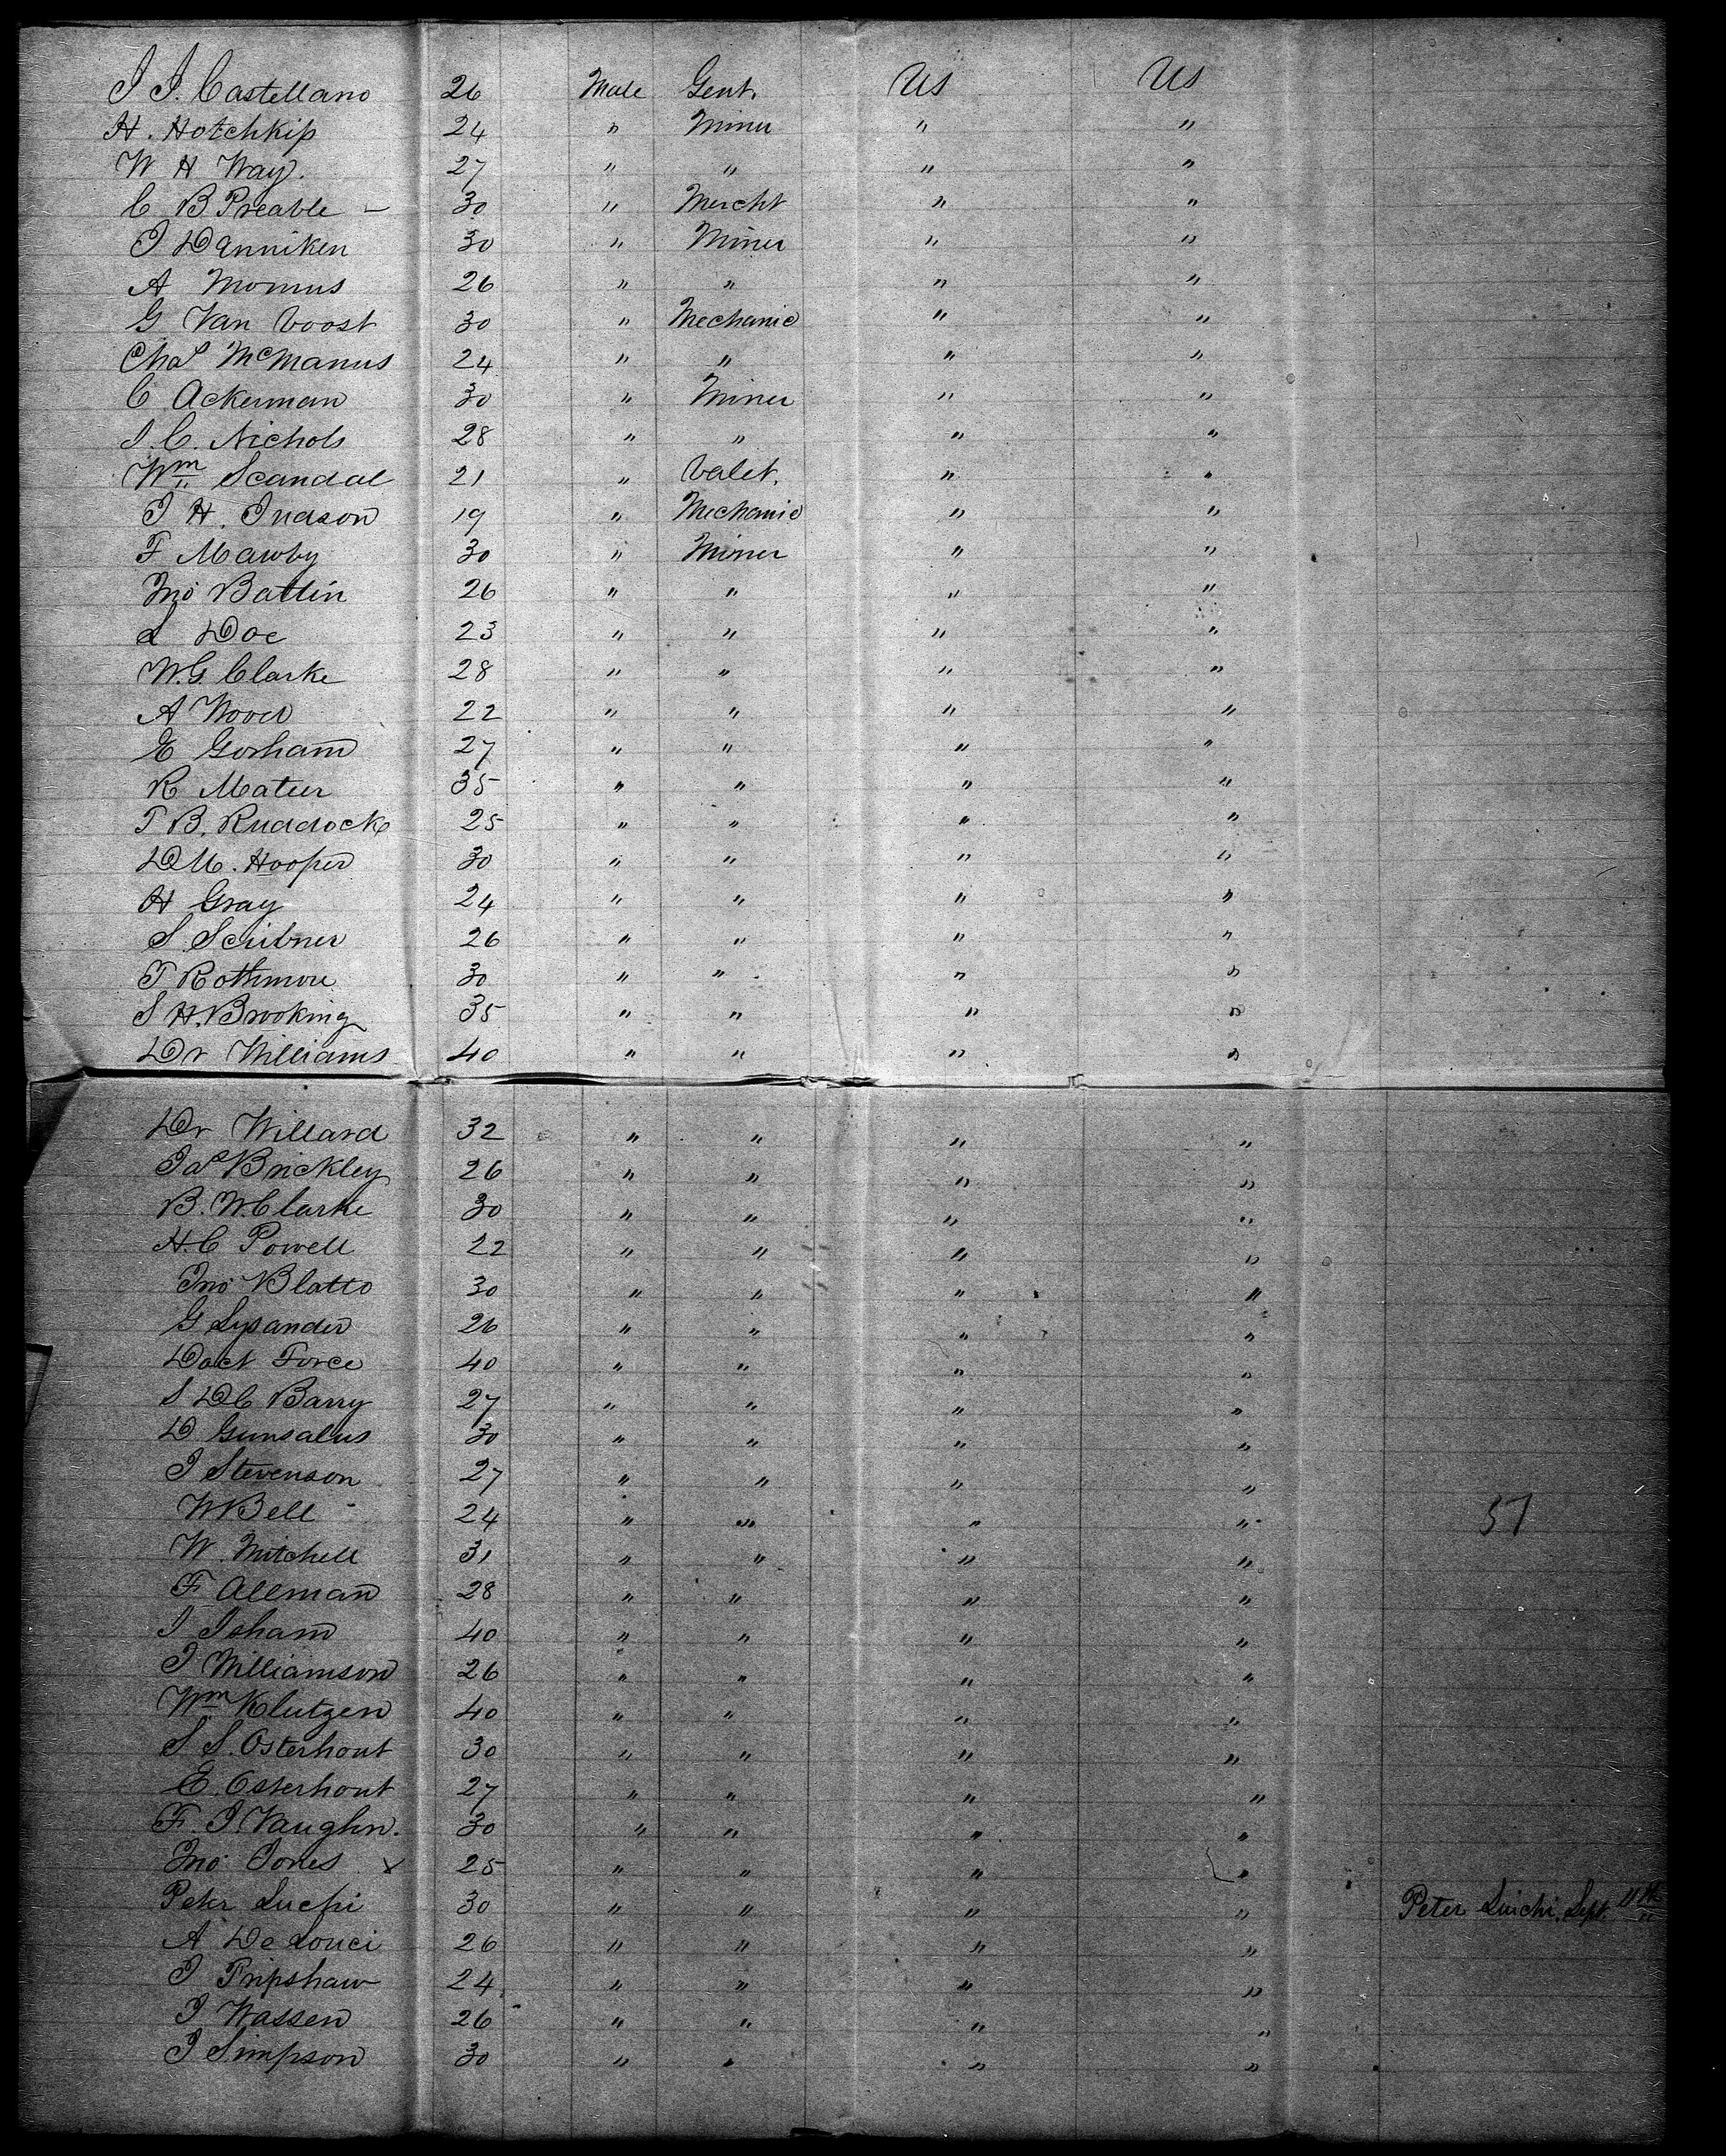 J J. Castellano 26 Male Gent. US US
H. Hotchkiss 24 " Miner " "
W H Way. 27 " " " "
C B Preable - 30 " Mercht " "
J Danniken 30 " Miner " "
A Momus 26 " " " "
G Van Voost 30 " Mechanic " "
Chas McManus 24 " " " "
C Ackerman 30 " Miner " "
J. C. Nichols 28 " " " "
Wm Scandal 21 " Valet. " "
J H. Judson 19 " Mechanic " "
F Mawby 30 " Miner " "
Jno Battin 26 " " " "
L Doe 23 " " " "
W. G. Clarke 28 " " " "
A Wood 22 " " " "
E Gorham 27 " " " "
R Mateer 35 " " " "
T B. Ruddock 25 " " " "
D M. Hooper 30 " " " "
H Gray 24 " " " "
S. Scribner 26 " " " "
T Rothmore 30 " " " "
S H. Brooking 35 " " " "
Dr Williams 40 " " " "
Dr Willard 32 " " " "
Jas Brickley 26 " " " "
B. W. Clarke 30 " " " "
H. C Powell 22 " " " "
Jno Blatto 30 " " " "
G Lysander 26 " " " "
Doct Force 40 " " " "
S D C Barry 27 " " " "
D. Gunsalus 30 " " " "
J Stevenson 27 " " " "
W Bell 24 " " " " 57
W. Mitchell 31 " " " "
F Alleman 28 " " " "
J Isham 40 " " " "
J Williamson 26 " " " "
Wm Klutzen 40 " " " "
S S. Osterhout 30 " " " "
E. Osterhout 27 " " " "
F. J. Vaughn. 30 " " " "
Jno Jones x 25 " " " "
Peter Luchi 30 " " " " Peter Luichi. Sept. 11th
A De Louci 26 " " " "
J Pripshaw 24 " " " "
J Wassen 26 " " " "
J Simpson 30 " " " "